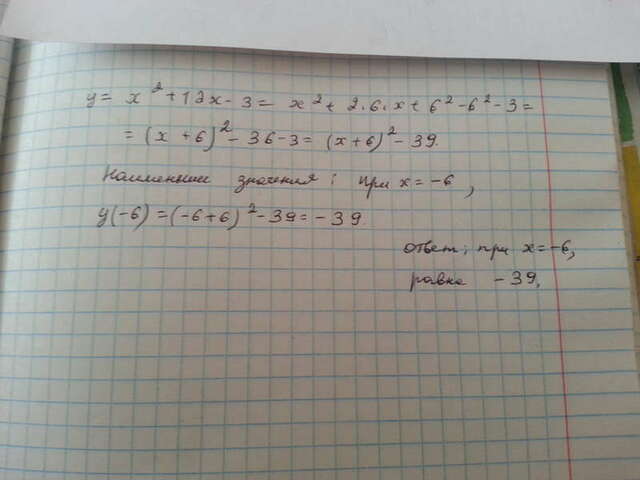 y = x² + 12x - 3 = x² + 2·6·x + 6² - 6² - 3 =
= (x + 6)² - 36 - 3 = (x + 6)² - 39.
Наименьшее значения: при x = -6,
y(-6) = (-6+6)² - 39 = -39.
ответ; при x = -6,
равно -39,